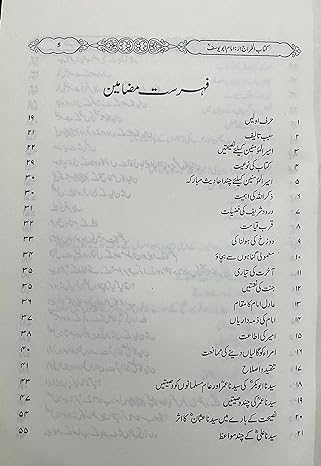 کتاب الخراج از: امام ابو یوسفؒ 5
فہرست مضامین
۱ حرف اولیں ۱۹
۲ سبب تالیف ۲۱
۳ امیر المؤمنین کیلئے نصیحتیں ۲۲
۴ کتاب کی نوعیت ۲۹
۵ امیر المؤمنین کیلئے چند احادیث مبارکہ ۳۰
۶ ذکر اللہ کی اہمیت ۳۰
۷ درود شریف کی فضیلت ۳۱
۸ قرب قیامت ۳۲
۹ دوزخ کی ہولناکی ۳۳
۱۰ معمولی گناہوں سے بچاؤ ۳۴
۱۱ آخرت کی تیاری ۳۵
۱۲ جنت کی نعمتیں ۳۶
۱۳ عادل امام کا مقام ۳۶
۱۴ امام کی ذمہ داریاں ۳۷
۱۵ امیر کی اطاعت ۳۸
۱۶ امراء کو گالیاں دینے کی ممانعت ۴۰
۱۷ تنقید و اصلاح ۴۱
۱۸ سیدنا ابوبکرؓ کی سیدنا عمرؓ اور عام مسلمانوں کو وصیتیں ۴۳
۱۹ سیدنا عمرؓ کی چند وصیتیں ۴۷
۲۰ نصیحت کے بارے میں سیدنا عثمانؓ کا اثر ۵۴
۲۱ سیدنا علیؓ کے چند مواعظ ۵۵